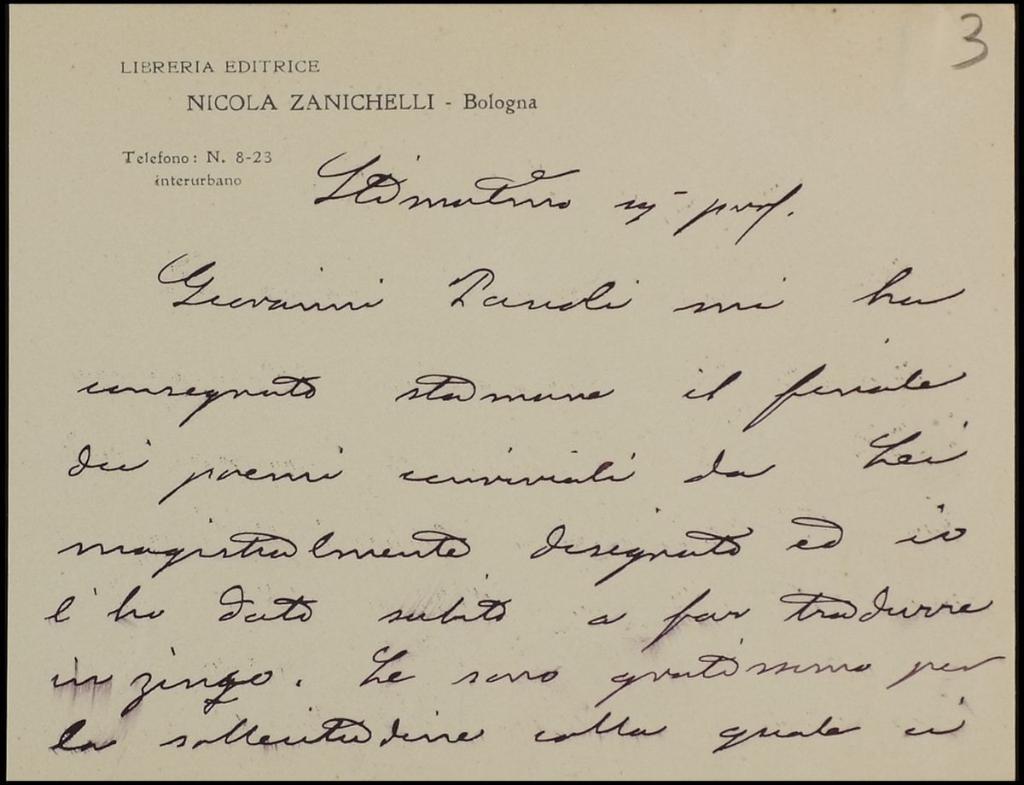 3
LIBRERIA EDITRICE
NICOLA ZANICHELLI - Bologna
Telefono: N. 8-23
interurbano
Stimatmo sigr prof.
Giovanni Pascoli mi ha
consegnato stamane il finale
dei poemi conviviali da Lei
magistralmente disegnato ed io
l'ho dato subito a far tradurre
in zingo. Le sono gratissimo per
la sollecitudine colla quale ci